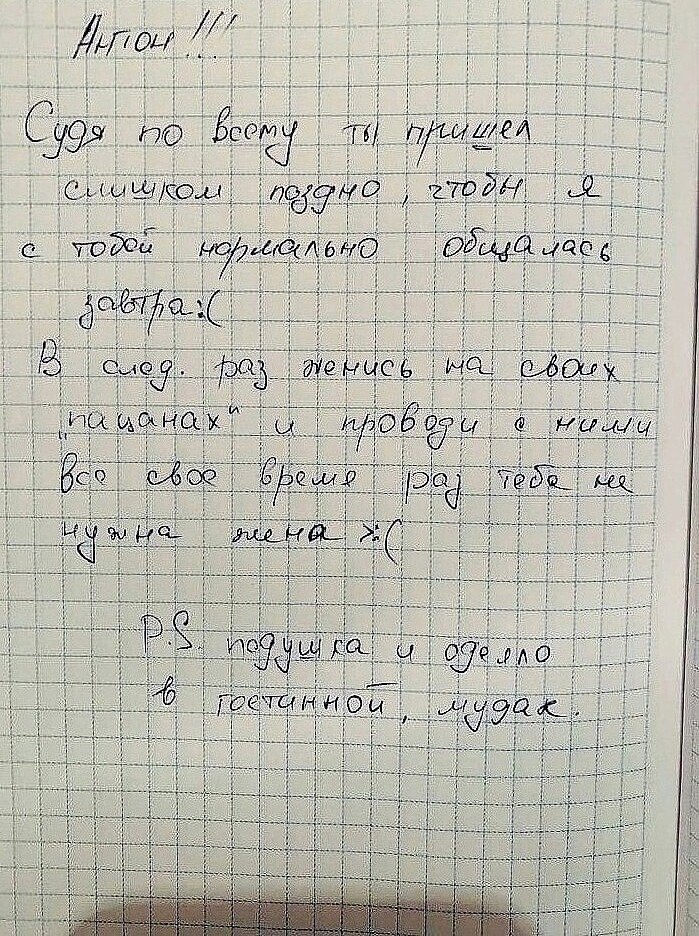 Антон!!!
Судя по всему ты пришел
слишком поздно, чтобы я
с тобой нормально общалась
завтра:(
В след. раз женись на своих
"пацанах" и проводи с ними
все свое время раз тебе не
нужна жена >:(
P.S подушка и одеяло
в гостинной, мудак.